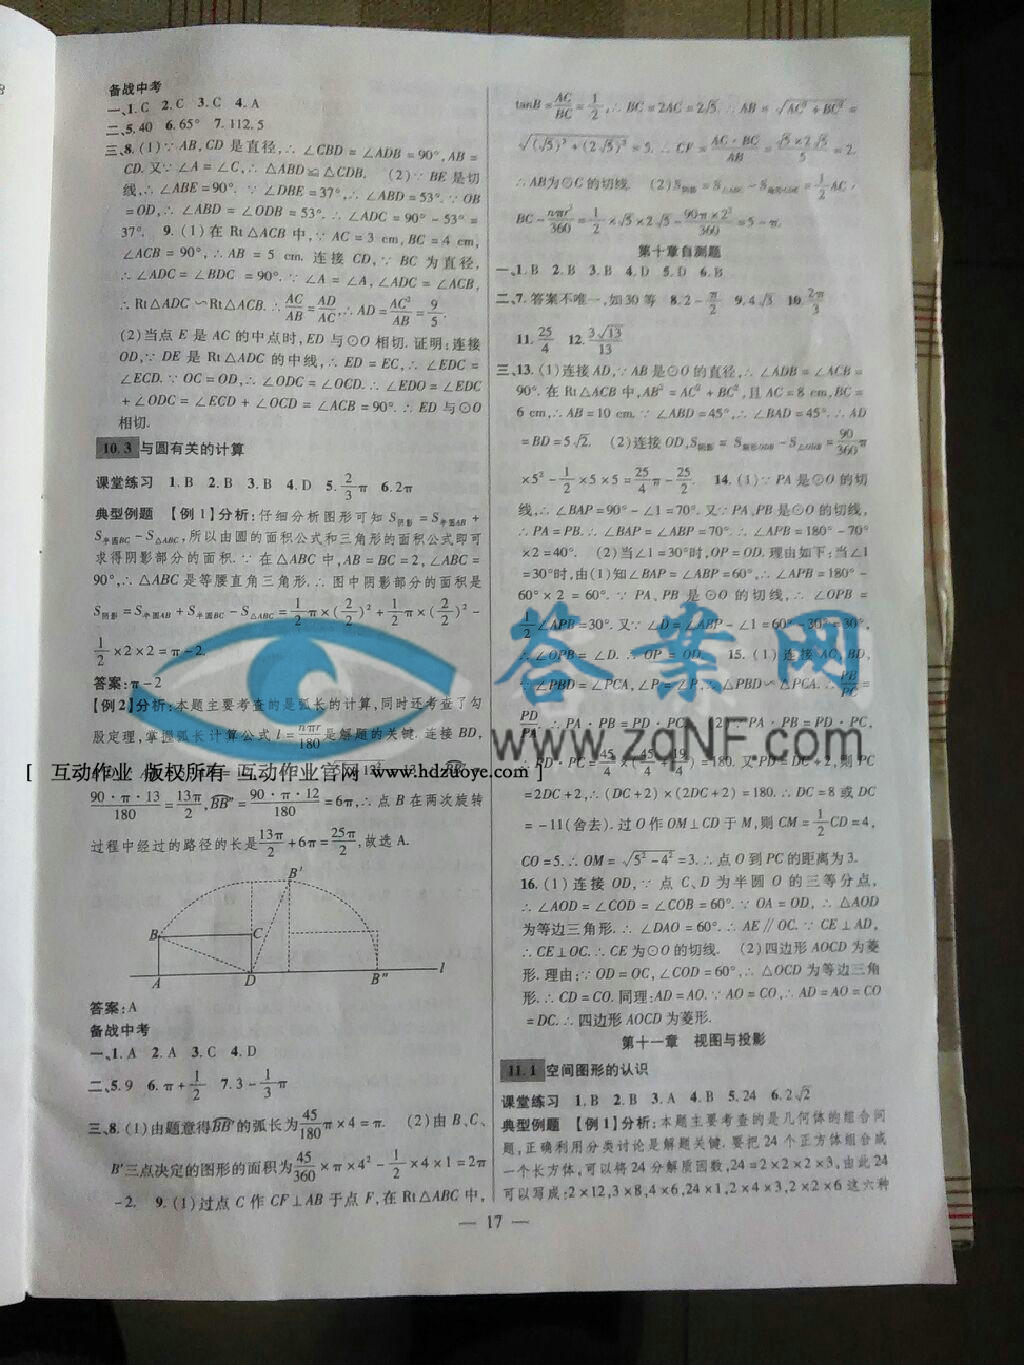 备战中考
一、1.C 2.C 3.C 4.A
二、5.40 6.65° 7.112.5
三、8.(1)∵AB,CD是直径,∴∠CBD=∠ADB=90°,AB=
CD.又∵∠A=∠C,∴△ABD≌△CDB. (2)∵BE是切
线,∴∠ABE=90°.∵∠DBE=37°,∴∠ABD=53°.∵OB
=OD,∴∠ABD=∠ODB=53°.∴∠ADC=90°-53°=
37°. 9.(1)在Rt△ACB中,∵AC=3 cm,BC=4 cm,
∠ACB=90°,∴AB=5 cm.连接CD,∵BC为直径,
∴∠ADC=∠BDC=90°.∵∠A=∠A,∠ADC=∠ACB,
∴Rt△ADC∽Rt△ACB.∴AC/AB=AD/AC,∴AD=AC²/AB=9/5.
(2)当点E是AC的中点时,ED与⊙O相切.证明:连接
OD,∵DE是Rt△ADC的中线,∴ED=EC,∴∠EDC=
∠ECD.∵OC=OD,∴∠ODC=∠OCD.∴∠EDO=∠EDC
+∠ODC=∠ECD+∠OCD=∠ACB=90°.∴ED与⊙O
相切.
10.3 与圆有关的计算
课堂练习 1.B 2.B 3.B 4.D 5.2/3π 6.2π
典型例题 【例1】分析:仔细分析图形可知S阴影=S半圆AB+
S半圆BC-S△ABC,所以由圆的面积公式和三角形的面积公式即可
求得阴影部分的面积.∵在△ABC中,AB=BC=2,∠ABC=
90°,∴△ABC是等腰直角三角形.∴图中阴影部分的面积是
S阴影=S半圆AB+S半圆BC-S△ABC=1/2π×(2/2)²+1/2π×(2/2)²-
1/2×2×2=π-2.
答案:π-2
【例2】分析:本题主要考查的是弧长的计算,同时还考查了勾
股定理,掌握弧长计算公式l=nπr/180是解题的关键.连接BD,
[ 互动作业 版权所有 互动作业官网 www.hdzuoye.com ]
90·π·13/180=13π/2,BB″=90·π·12/180=6π,∴点B在两次旋转
过程中经过的路径的长是13π/2+6π=25π/2,故选A.
B′
B C
A D B″ l
答案:A
备战中考
一、1.A 2.A 3.C 4.D
二、5.9 6.π+1/2 7.3-1/3π
三、8.(1)由题意得BB′的弧长为45/180π×4=π. (2)由B、C、
B′三点决定的图形的面积为45/360×π×4²-1/2×4×1=2π
-2. 9.(1)过点C作CF⊥AB于点F,在Rt△ABC中,
tanB=AC/BC=1/2,∴BC=2AC=2√5.∴AB=√(AC²+BC²)=
√((√5)²+(2√5)²)=5.∴CF=AC·BC/AB=√5×2√5/5=2.
∴AB为⊙C的切线. (2)S阴影=S△ABC-S扇形CDE=1/2AC·
BC-nπr²/360=1/2×√5×2√5-90π×2²/360=5-π.
第十章自测题
一、1.B 2.B 3.B 4.D 5.D 6.B
二、7.答案不唯一,如30等 8.2-π/2 9.4√3 10.2π/3
11.25/4 12.3√13/13
三、13.(1)连接AD,∵AB是⊙O的直径,∴∠ADB=∠ACB=
90°.在Rt△ACB中,AB²=AC²+BC²,且AC=8 cm,BC=
6 cm,∴AB=10 cm.∵∠ABD=45°,∴∠BAD=45°.∴AD
=BD=5√2. (2)连接OD,S阴影=S扇形ODB-S△ODB=90/360π
×5²-1/2×5×5=25/4π-25/2. 14.(1)∵PA是⊙O的切
线,∴∠BAP=90°-∠1=70°.又∵PA、PB是⊙O的切线,
∴PA=PB.∴∠BAP=∠ABP=70°.∴∠APB=180°-70°
×2=40°. (2)当∠1=30°时,OP=OD.理由如下:当∠1
=30°时,由(1)知∠BAP=∠ABP=60°,∴∠APB=180°-
60°×2=60°.∵PA、PB是⊙O的切线,∴∠OPB=
1/2∠APB=30°.又∵∠D=∠ABP-∠1=60°-30°=30°,
∴∠OPB=∠D.∴OP=OD. 15.(1)连接AC、BD,
∵∠PBD=∠PCA,∠P=∠P,∴△PBD∽△PCA.∴PB/PC=
PD/PA.∴PA·PB=PC·PD. (2)∵PA·PB=PD·PC,
∴PD·PC=45/4×(45/4+19/4)=180.又PD=DC+2,则PC
=2DC+2,∴(DC+2)×(2DC+2)=180.∴DC=8或DC
=-11(舍去).过O作OM⊥CD于M,则CM=1/2CD=4,
CO=5.∴OM=√(5²-4²)=3.∴点O到PC的距离为3.
16.(1)连接OD,∵点C、D为半圆O的三等分点,
∴∠AOD=∠COD=∠COB=60°.∵OA=OD,∴△AOD
为等边三角形.∴∠DAO=60°.∴AE∥OC.∵CE⊥AD,
∴CE⊥OC.∴CE为⊙O的切线. (2)四边形AOCD为菱
形.理由:∵OD=OC,∠COD=60°,∴△OCD为等边三角
形.∴CD=CO.同理:AD=AO.∵AO=CO,∴AD=AO=CO
=DC.∴四边形AOCD为菱形.
第十一章 视图与投影
11.1 空间图形的认识
课堂练习 1.B 2.B 3.A 4.B 5.24 6.2√2
典型例题 【例1】分析:本题主要考查的是几何体的组合问
题,正确利用分类讨论是解题关键.要把24个正方体组合成
一个长方体,可以将24分解质因数,24=2×2×2×3,由此24
可以写成:2×12,3×8,4×6,24×1,2×4×3,2×2×6这六种
— 17 —
答案网
www.zqNF.com